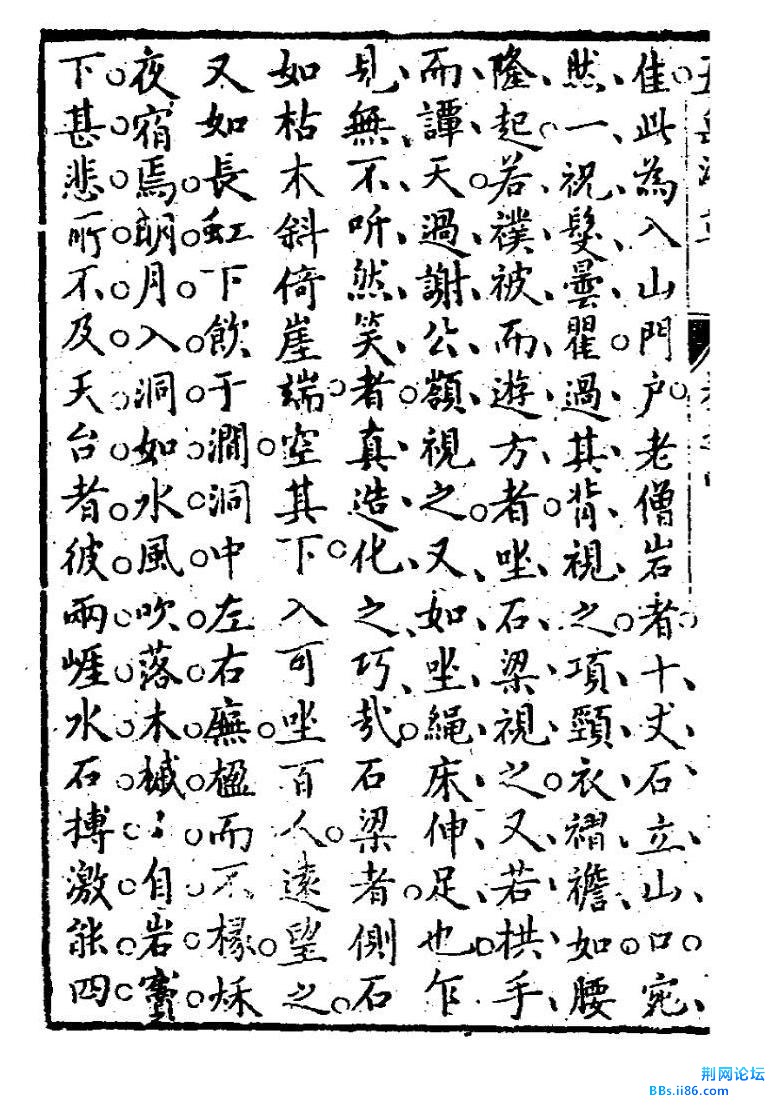 佳此為入山門户老僧岩者十丈石立山口宛
然一祝髮曇瞿過其背視之項頸衣褶襜如腰
隆起若襆被而遊方者坐石梁視之又若拱手
而譚天過謝公嶺視之又如坐繩床伸足也乍
見無不听然笑者真造化之巧哉石梁者側石
如枯木斜倚崖端空其下入可坐百人遠望之
又如長虹下飲于澗洞中左右廡楹而不椽秌
夜宿焉朗月入洞如水風吹落木槭〻自岩竇
下甚悲所不及天台者彼兩崕水石搏激能四
荆网论坛
BBs.ii86.com